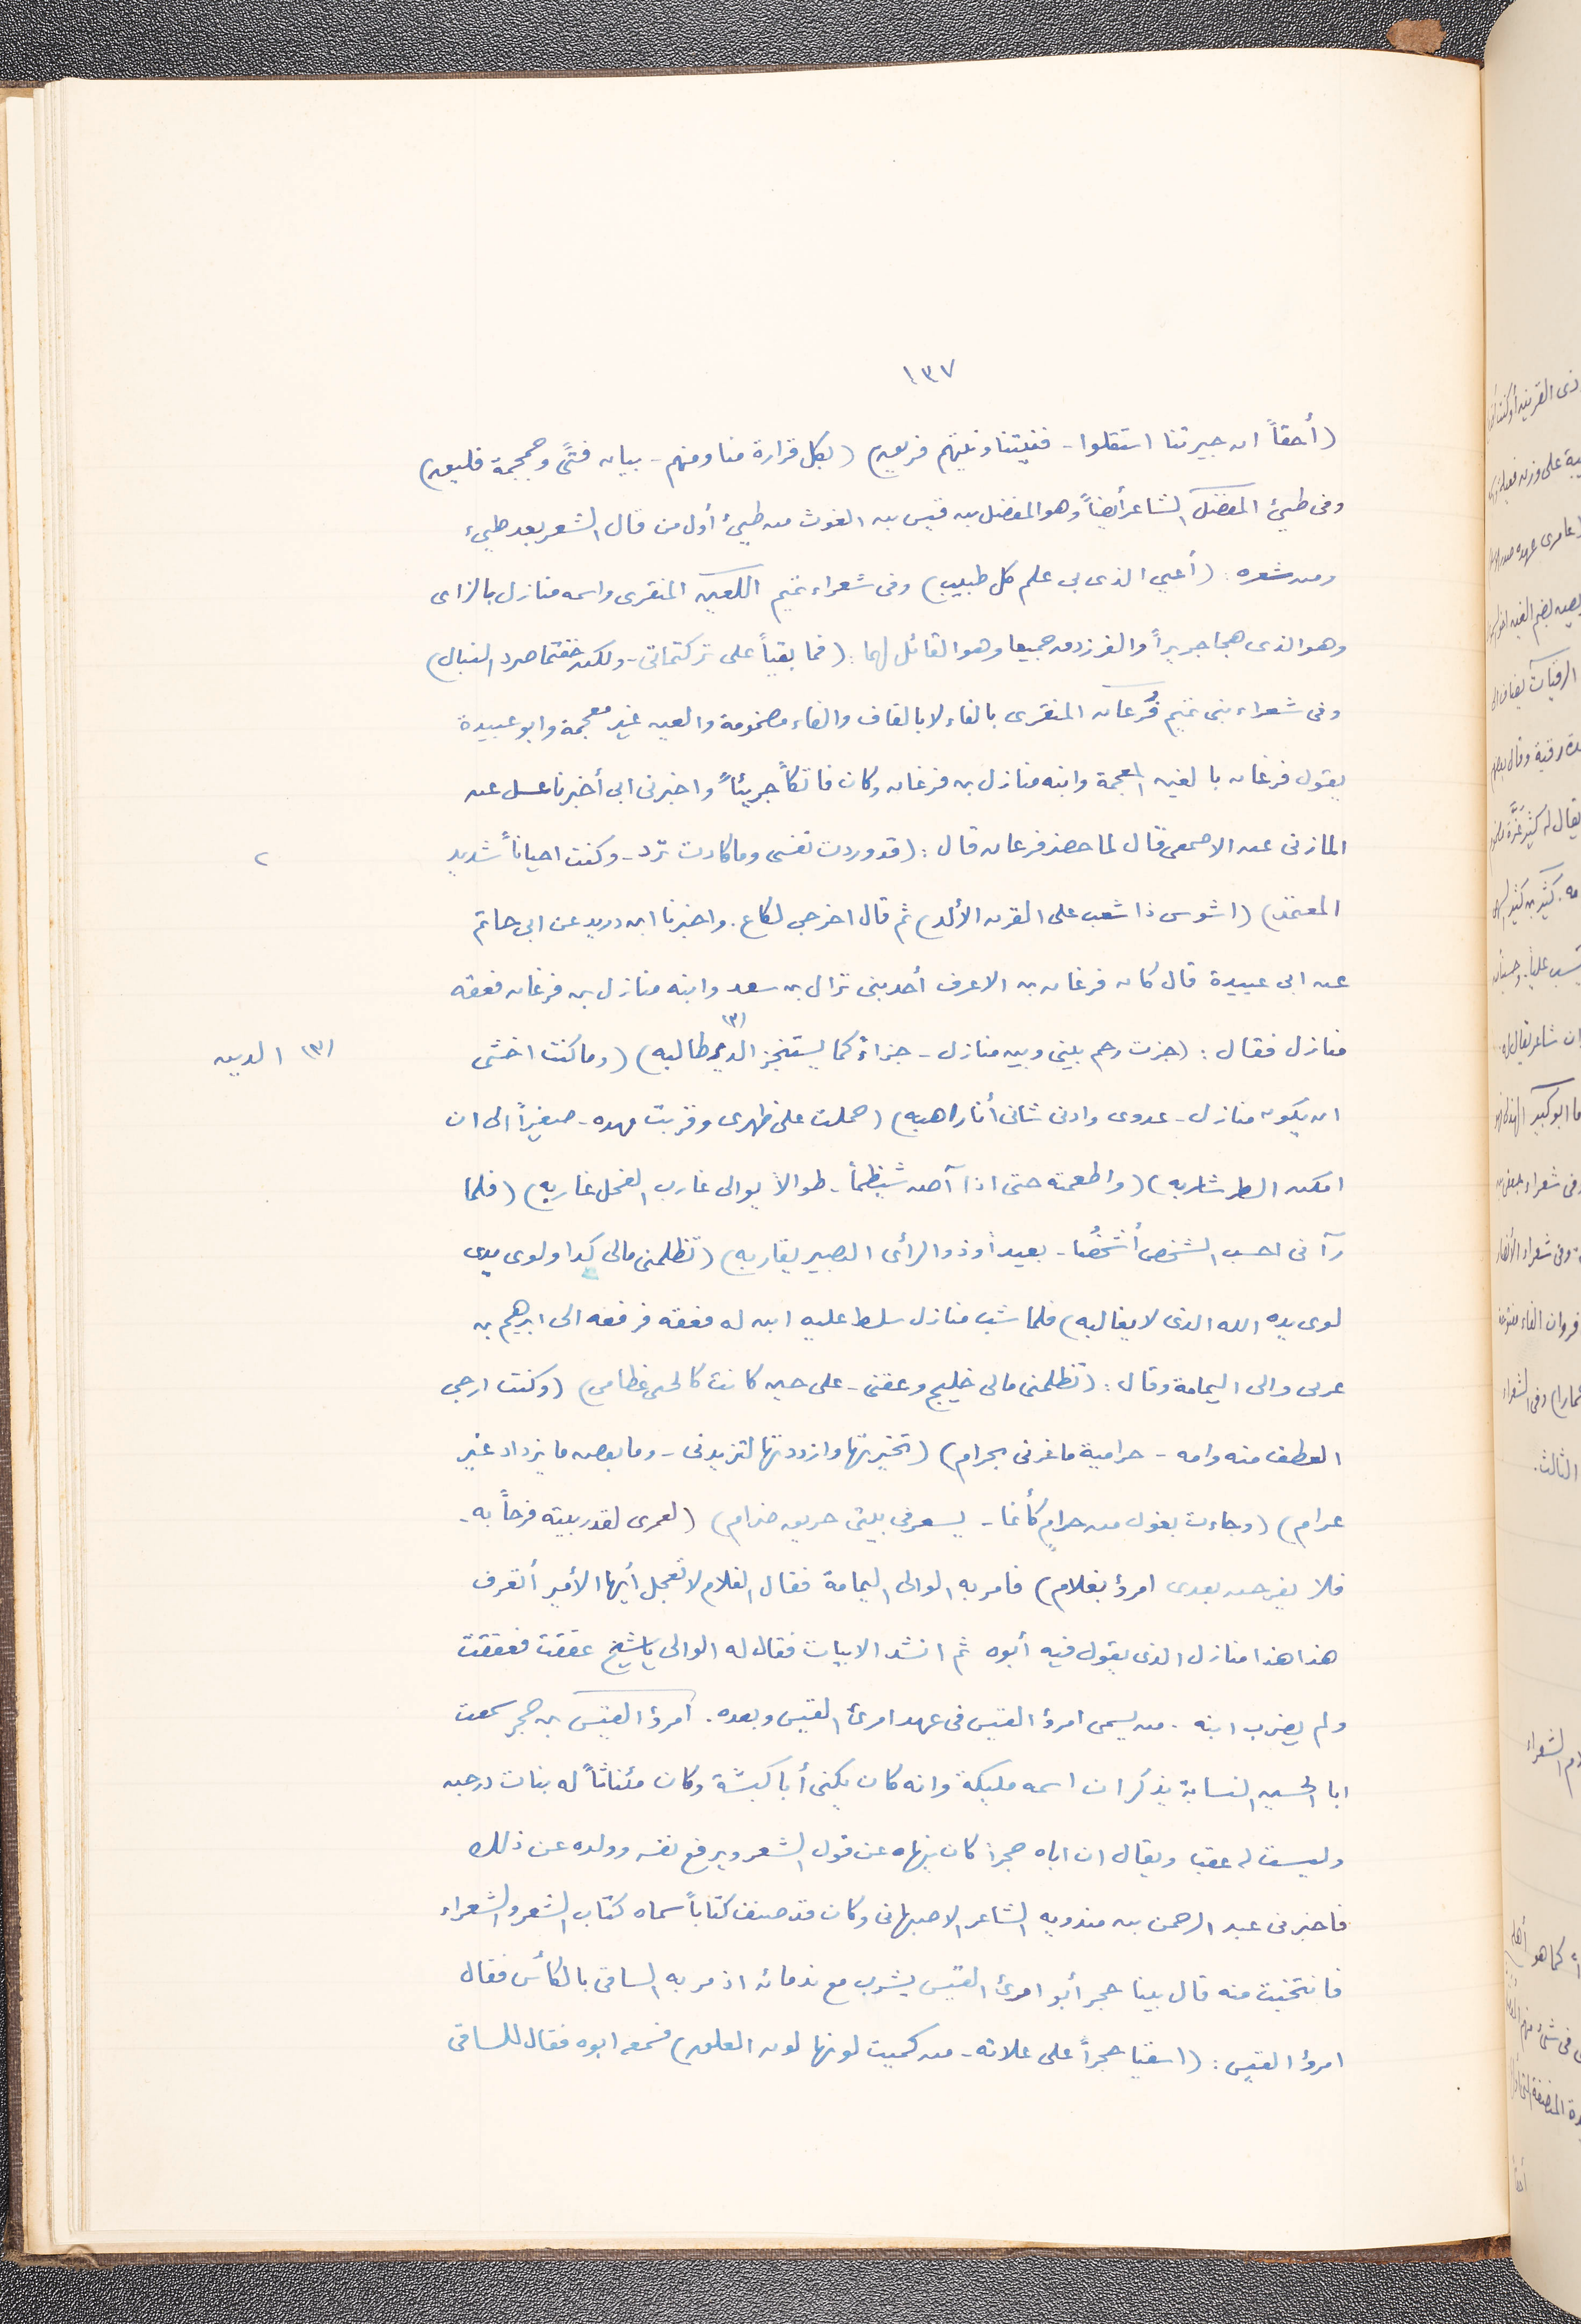 ١٣٧
(أحقاً ان جيرتنا استقلوا - فنيتنا ونيتهم فريق) (بكل قرارة منا ومنهم - بيان فتىً وجمجمة فليق)
وفى طيئ المفضل الشاعر أيضاً وهو المفضل بن قيس بن الغوث من طيئ أول من قال الشعر بعد طيئ
ومن شعره: (أعيي الذى بى علم كل طبيب) وفى شعراء تميم اللعين المنقرى واسمه منازل بالزاى
وهو الذى هجا جريراً والفرزدق جميعا وهو القائل لهما: (فما بقياً على تركتمانى - ولكن خفتما صرد النبال)
وفى شعراء بنى تميم فُرعان المنقرى بالفاء لا بالقاف والفاء مضمومة والعين غير معجمة وابو عبيدة
يقول فرغان بالغين المعجمة وابنه منازل بن فرغان وكان فاتكاً جريئاً واخبرنى ابى أخبرنا عسل عن
المازنى عن الاصمعى قال لما حضر فرعان قال: (قد وردت نفسى وما كادت ترد - وكنت احياناً شديد ٢
المعتمد) (اشوس ذا شعب على القرن الألد) ثم قال اخرجى لكاع. واخبرنا ابن دريد عن ابى حاتم
عن ابى عبيدة قال كان فرغان بن الاعرف أحد بنى نزال بن سعد وابنه منازل بن فرغان فعقه
منازل فقال: (جزت رحم بينى وبين منازل - جزاءً كما يستنجز الدين (٣) طالبه) (وما كنت اخشى (٣) الدين
ان يكون منازل - عدوى وادنى شانى أنا راهبه) (حملت على ظهرى وقربت مهده - صغيراً الى ان
امكن الطر شاربه) (واطعمته حتى اذا آض شيظماً - طوالاً يوالى غارب الفحل غاربه) (فلما
رآنى احسب الشخص أشخُصا - بعيداً وذو الرأى البصير يقاربه) (تظلمنى مالى كدا ولوى يدى
لوى يده الله الذى لا يغالبه) فلما شب منازل سلط عليه ابن له فعقه فرفعه الى ابرهيم بن
عربى والى اليمامة وقال: (تظلمنى مالى خليج وعقنى - على حين كانت كالحنى عظامى) (وكنت ارجى
العطف منه وامه - حرامية ما غرنى بحرام) (تخيرتها وازددتها لتزيدنى - وما بعض ما يزداد غير
عرام) (وجاءت بغول من حرامٍ كأنما - يسعر فى بيتى حريق ضرام) (لعمرى لقد ربيته فرحاً به -
فلا يفرحن بعدى امرؤ بغلام) فامر به الوالى اليمامة فقال الغلام لا تعجل أيها الأمير أتعرف
هذا هذا منازل الذى يقول فيه أبوه ثم انشد الابيات فقال له الوالى يا شيخ عققت فعققت
ولم يضرب ابنه. من يسمى امرؤ القيس فى عهد امرئ القيس وبعده. امرؤ القيس بن حجر سمعت
ابا الحسين النسابة يذكر ان اسمه مليكة وانه كان يكنى أبا كبشة وكان مئناثاً له بنات درجن
وليست له عقبا ويقال ان اباه حجراً كان ينهاه عن قول الشعر ويرفع نفسه وولده عن ذلك
فاخبرنى عبد الرحمن بن مندويه الشاعر الاصبهانى وكان قد صنف كتاباً سماه كتاب الشعر والشعراء
فانتخبت منه قال بينا حجر أبو امرئ القيس يشرب مع ندمائه اذ مر به الساقى بالكأس فقال
امرؤ القيس: (اسقيا حجراً على علاته - من كميت لونها لون العلق) فسمع ابوه فقال للساقى